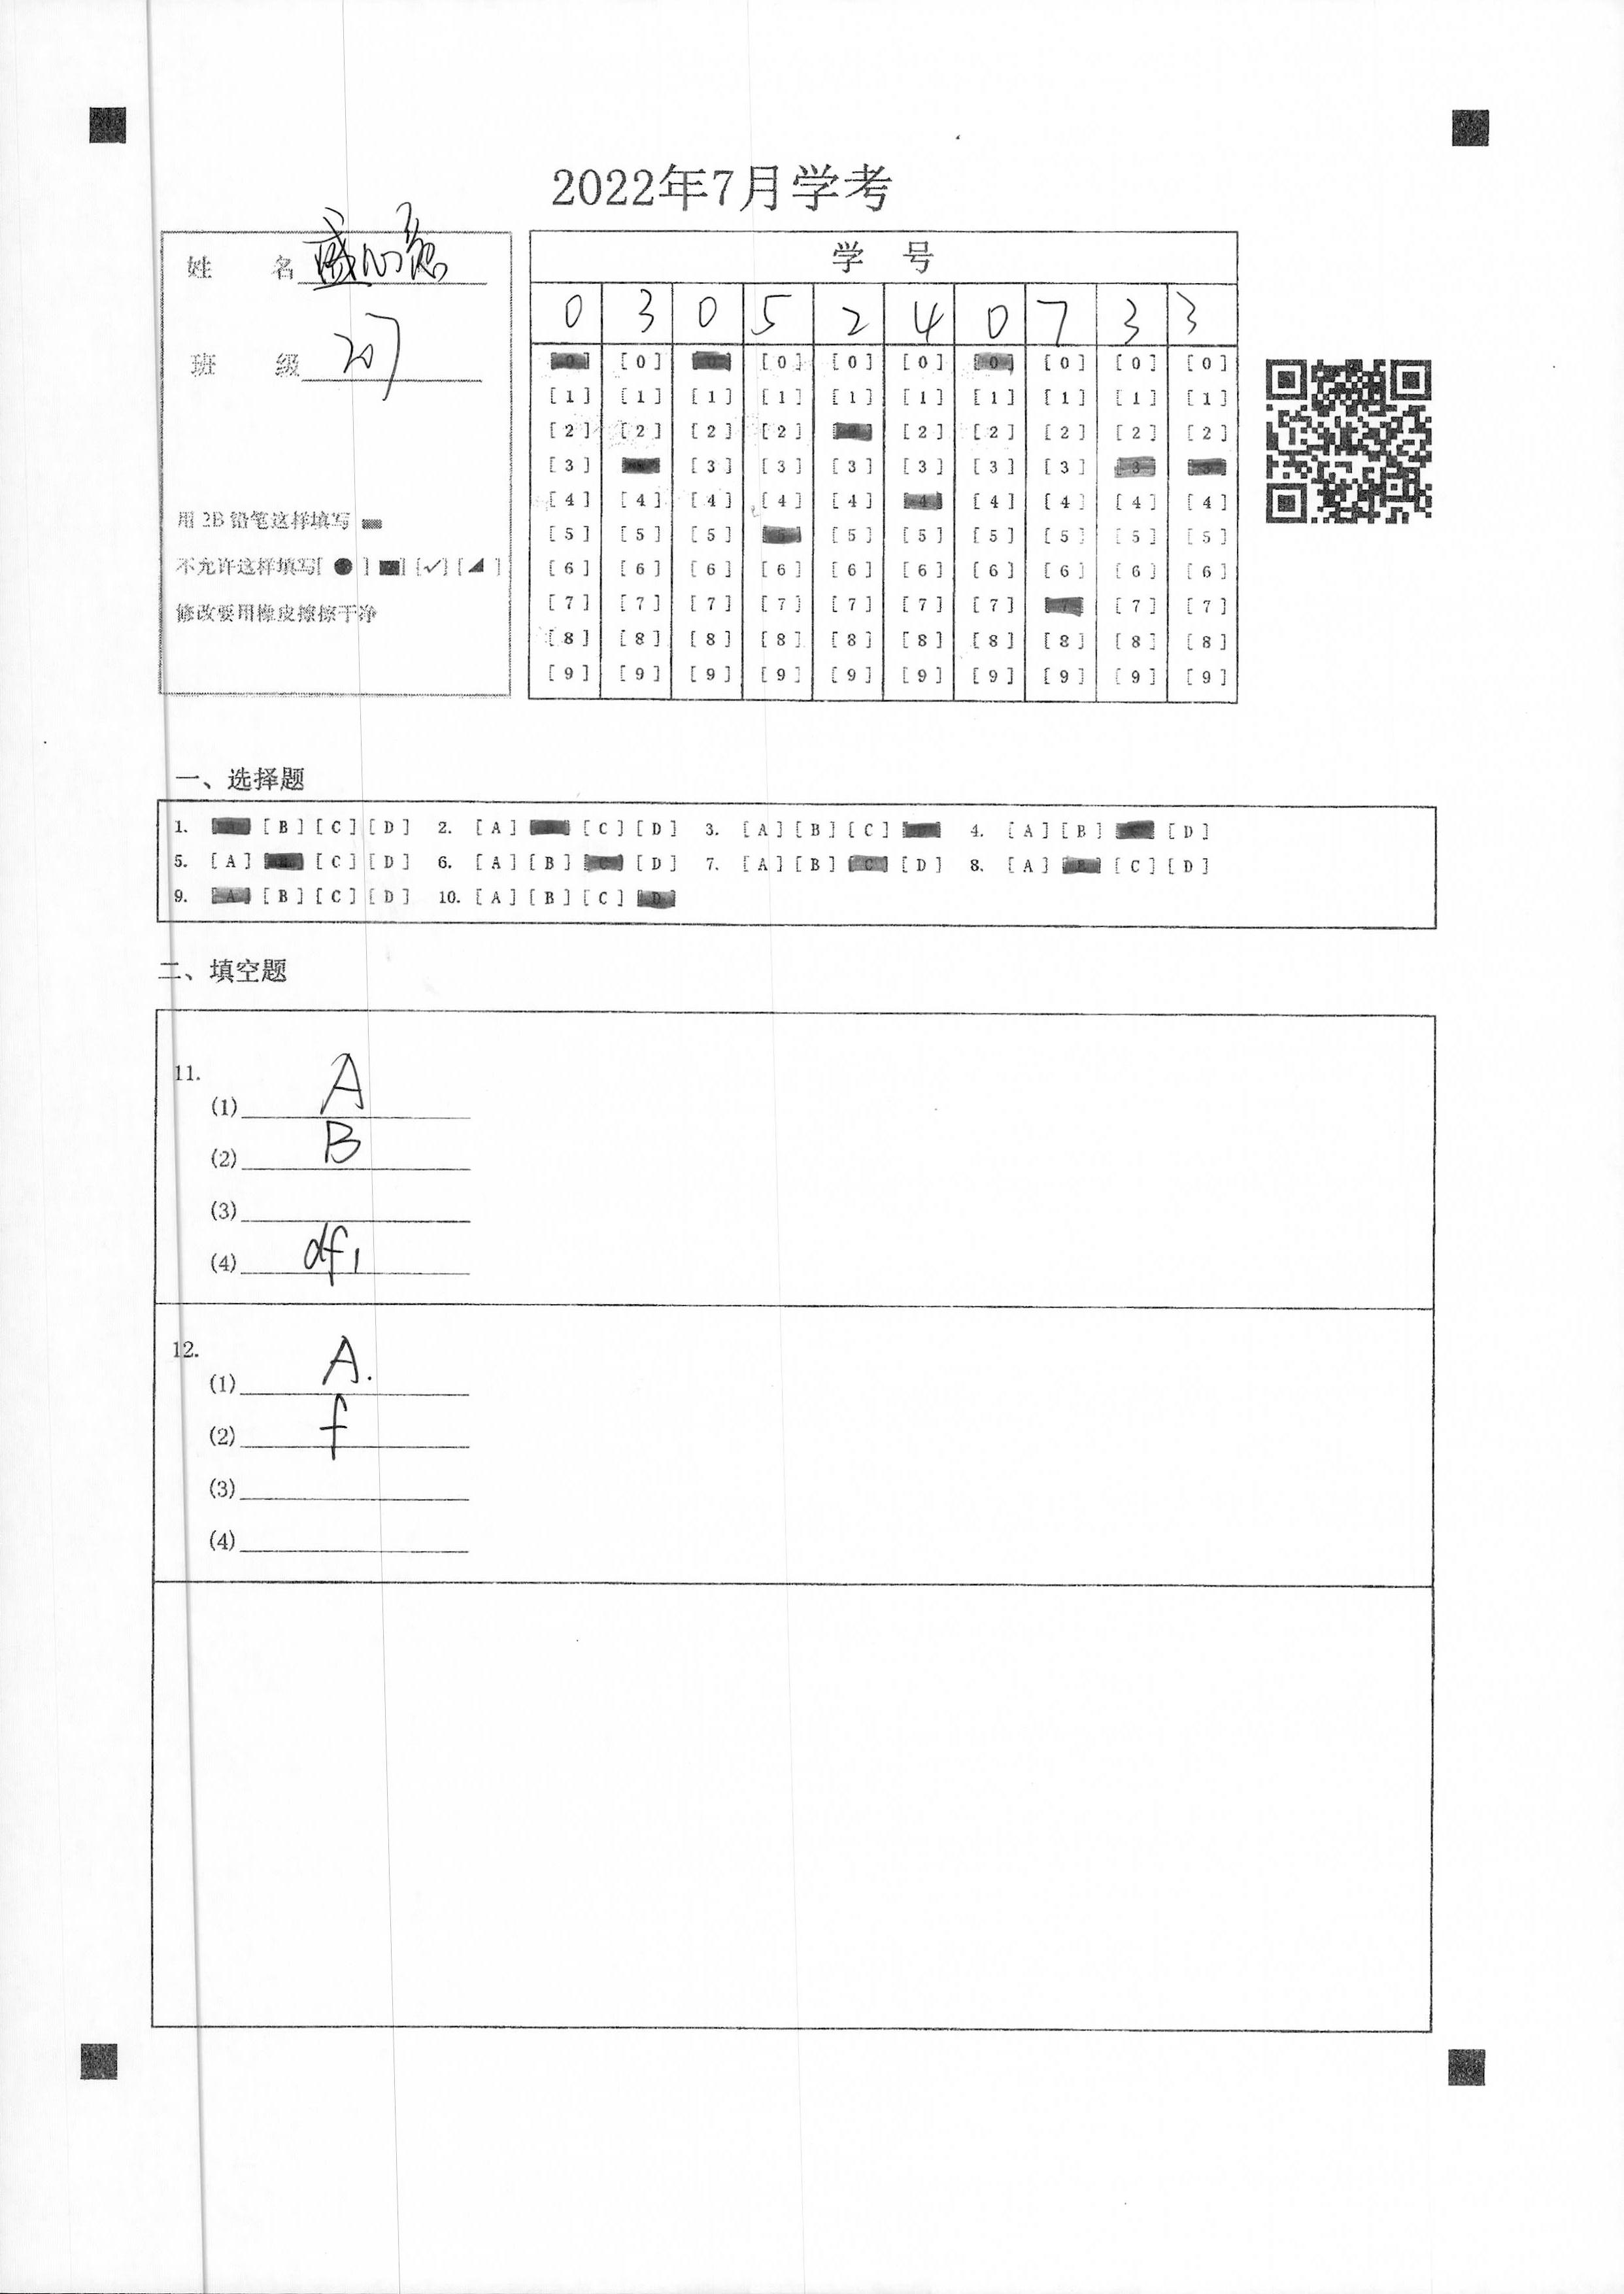 2022年7月学考
姓 名 盛心意
班 级 207
用 2B 铅笔这样填写
不允许这样填写[ ● ] [■] [✓] [◢ ]
修改要用橡皮擦擦干净
学 号
0 3 0 5 2 4 0 7 3 3
[0] [0] [0] [0] [0] [0] [0] [0] [0] [0]
[1] [1] [1] [1] [1] [1] [1] [1] [1] [1]
[2] [2] [2] [2] [2] [2] [2] [2] [2]
[3] [3] [3] [3] [3] [3] [3] [3] [3]
[4] [4] [4] [4] [4] [4] [4] [4] [4] [4]
[5] [5] [5] [5] [5] [5] [5] [5] [5]
[6] [6] [6] [6] [6] [6] [6] [6] [6] [6]
[7] [7] [7] [7] [7] [7] [7] [7] [7] [7]
[8] [8] [8] [8] [8] [8] [8] [8] [8] [8]
[9] [9] [9] [9] [9] [9] [9] [9] [9] [9]
一、选择题
1. [B] [C] [D] 2. [A] [C] [D] 3. [A] [B] [C] 4. [A] [B] [D]
5. [A] [C] [D] 6. [A] [B] [C] [D] 7. [A] [B] [C] [D] 8. [A] [B] [C] [D]
9. [A] [B] [C] [D] 10. [A] [B] [C] [D]
二、填空题
11.
(1) A
(2) B
(3)
(4) df,
12.
(1) A.
(2) f
(3)
(4)